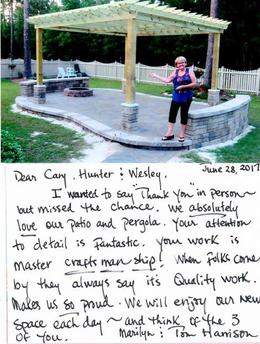 June 28, 2017
Dear Cary, Hunter & Wesley,
I wanted to say "Thank You" in person
but missed the chance. We absolutely
love our patio and pergola. Your attention
to detail is fantastic. Your work is
master craftsmanship! When folks come
by they always say it's Quality work.
Makes us so proud. We will enjoy our new
space each day ~ and think of the 3
of you. Marilyn & Tom Harrison